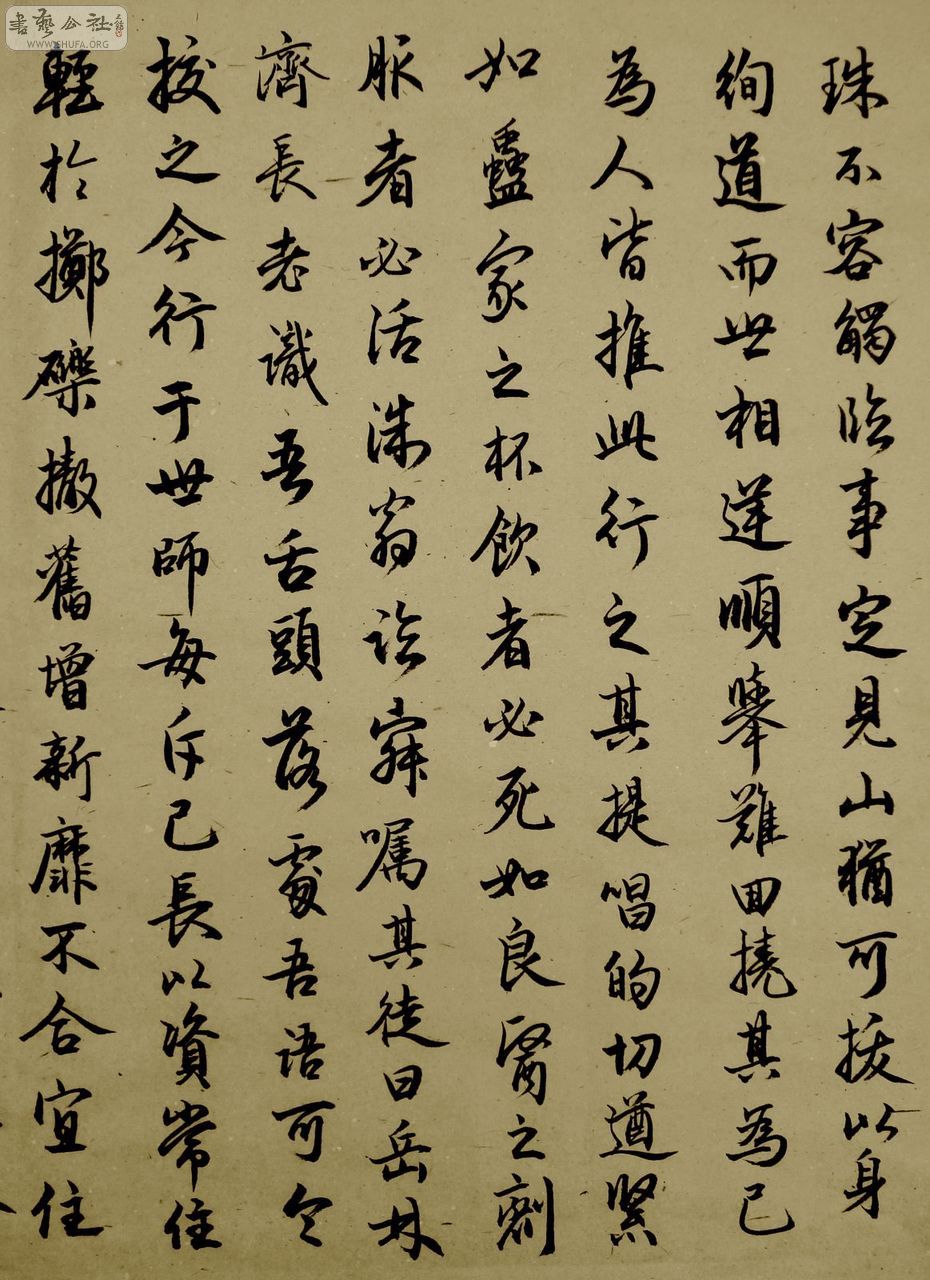 書藝公社
WWW.SHUFA.ORG
珠不容觸臨事定見山猶可拔以身
徇道而世相逆順舉難回撓其為已
為人皆推此行之其提唱的切遒緊
如蠱家之杯飲者必死如良醫之劑
脈者必活洙翁寐囑其徒曰岳林
濟長老識吾舌頭落處吾語可令
校之今行于世師每斥已長以資常住
輕於擲礫撤舊增新靡不合宜住